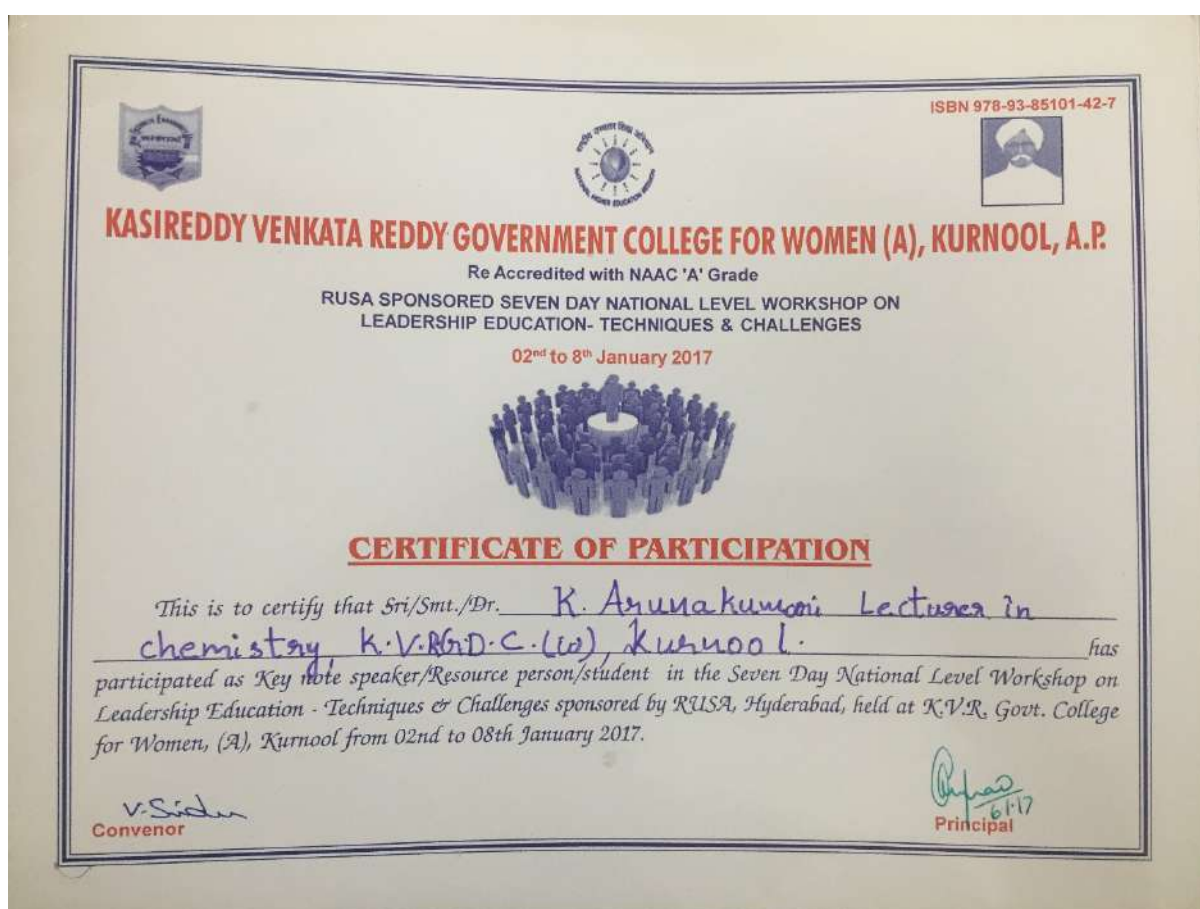 ISBN 978-93-85101-42-7
NATIONAL HIGHER EDUCATION MISSION
KASIREDDY VENKATA REDDY GOVERNMENT COLLEGE FOR WOMEN (A), KURNOOL, A.P.
Re Accredited with NAAC 'A' Grade
RUSA SPONSORED SEVEN DAY NATIONAL LEVEL WORKSHOP ON
LEADERSHIP EDUCATION- TECHNIQUES & CHALLENGES
02nd to 8th January 2017
CERTIFICATE OF PARTICIPATION
This is to certify that Sri/Smt./Dr. K. Arunakumari Lecturer in
chemistry, K.V.RG.D.C.(W), Kurnool. has
participated as Key note speaker/Resource person/student in the Seven Day National Level Workshop on
Leadership Education - Techniques & Challenges sponsored by RUSA, Hyderabad, held at K.V.R. Govt. College
for Women, (A), Kurnool from 02nd to 08th January 2017.
6/1/17
Convenor
Principal